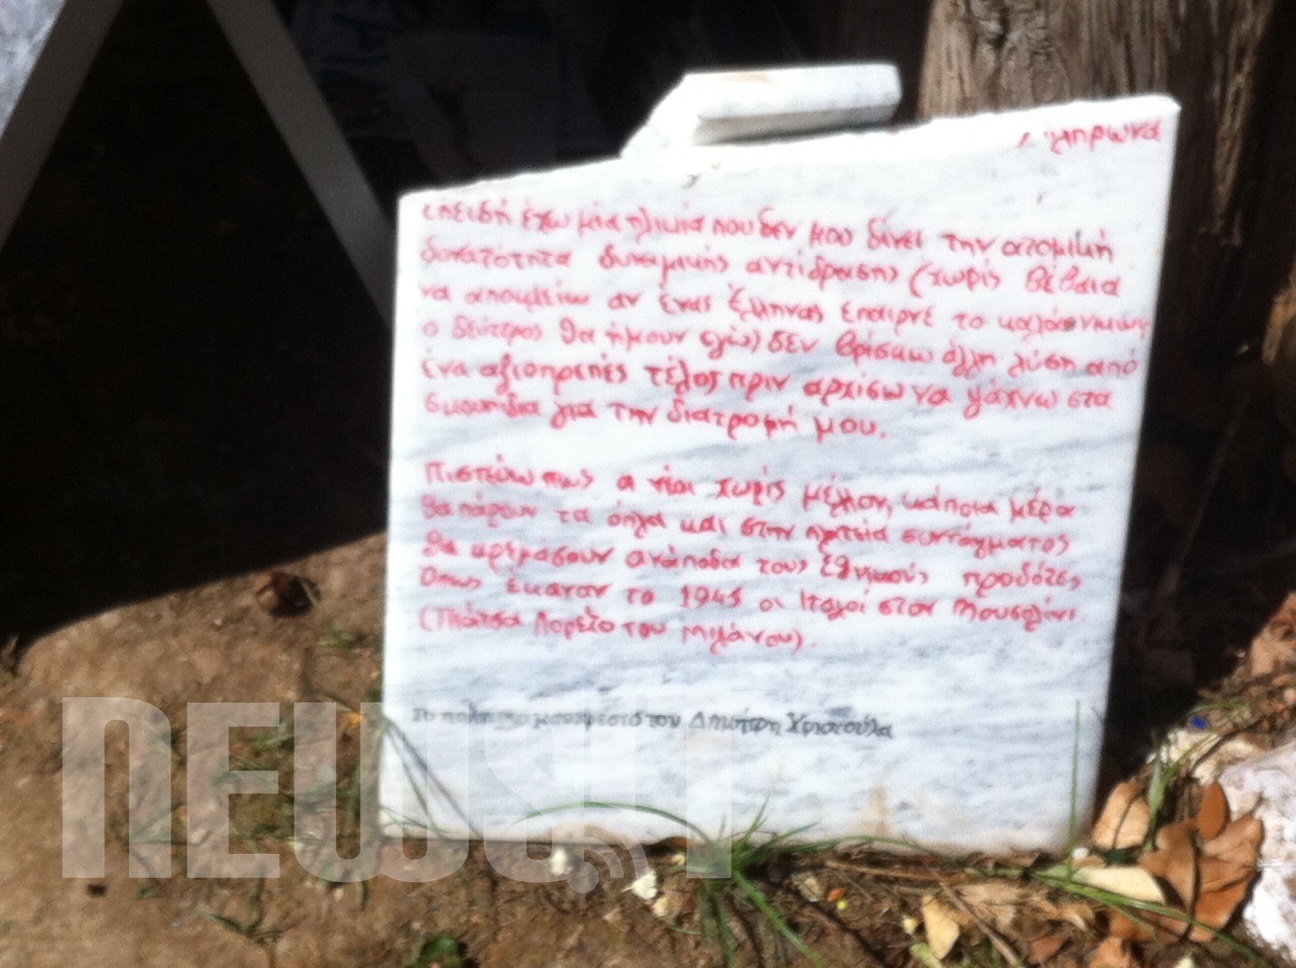 πληρώνα
επειδή έχω μία ηλικία που δεν μου δίνει την ατομική
δυνατότητα δυναμικής αντίδρασης (χωρίς βέβαια
να αποκλείω αν ένας Έλληνας έπαιρνε το καλάσνικωφ
ο δεύτερος θα ήμουν εγώ) δεν βρίσκω άλλη λύση από
ένα αξιοπρεπές τέλος πριν αρχίσω να ψάχνω στα
σκουπίδια για την διατροφή μου.
Πιστεύω πως οι νέοι χωρίς μέλλον, κάποια μέρα
θα πάρουν τα όπλα και στην πλατεία συντάγματος
θα κρεμάσουν ανάποδα τους Εθνικούς προδότες
όπως έκαναν το 1945 οι Ιταλοί στον Μουσολίνι
(Πιάτσα Λορέτο του Μιλάνου).
το πολιτικό μανιφέστο του Δημήτρη Χριστούλα
NEWSIT